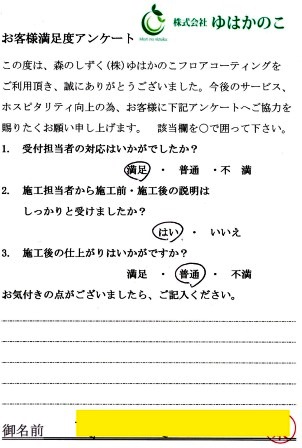 株式会社 ゆはかのこ
Mori no sizuku
お客様満足度アンケート
この度は、森のしずく(株)ゆはかのこフロアコーティングを
ご利用頂き、誠にありがとうございました。今後のサービス、
ホスピタリティ向上の為、お客様に下記アンケートへご協力を
賜りたくお願い申し上げます。 該当欄を○で囲って下さい。
1. 受付担当者の対応はいかがでしたか？
満足 ・ 普通 ・不 満
2. 施工担当者から施工前・施工後の説明は
しっかりと受けましたか？
はい ・ いいえ
3. 施工後の仕上がりはいかがですか？
満足 ・ 普通 ・ 不満
お気付きの点がございましたら、ご記入ください。
御名前